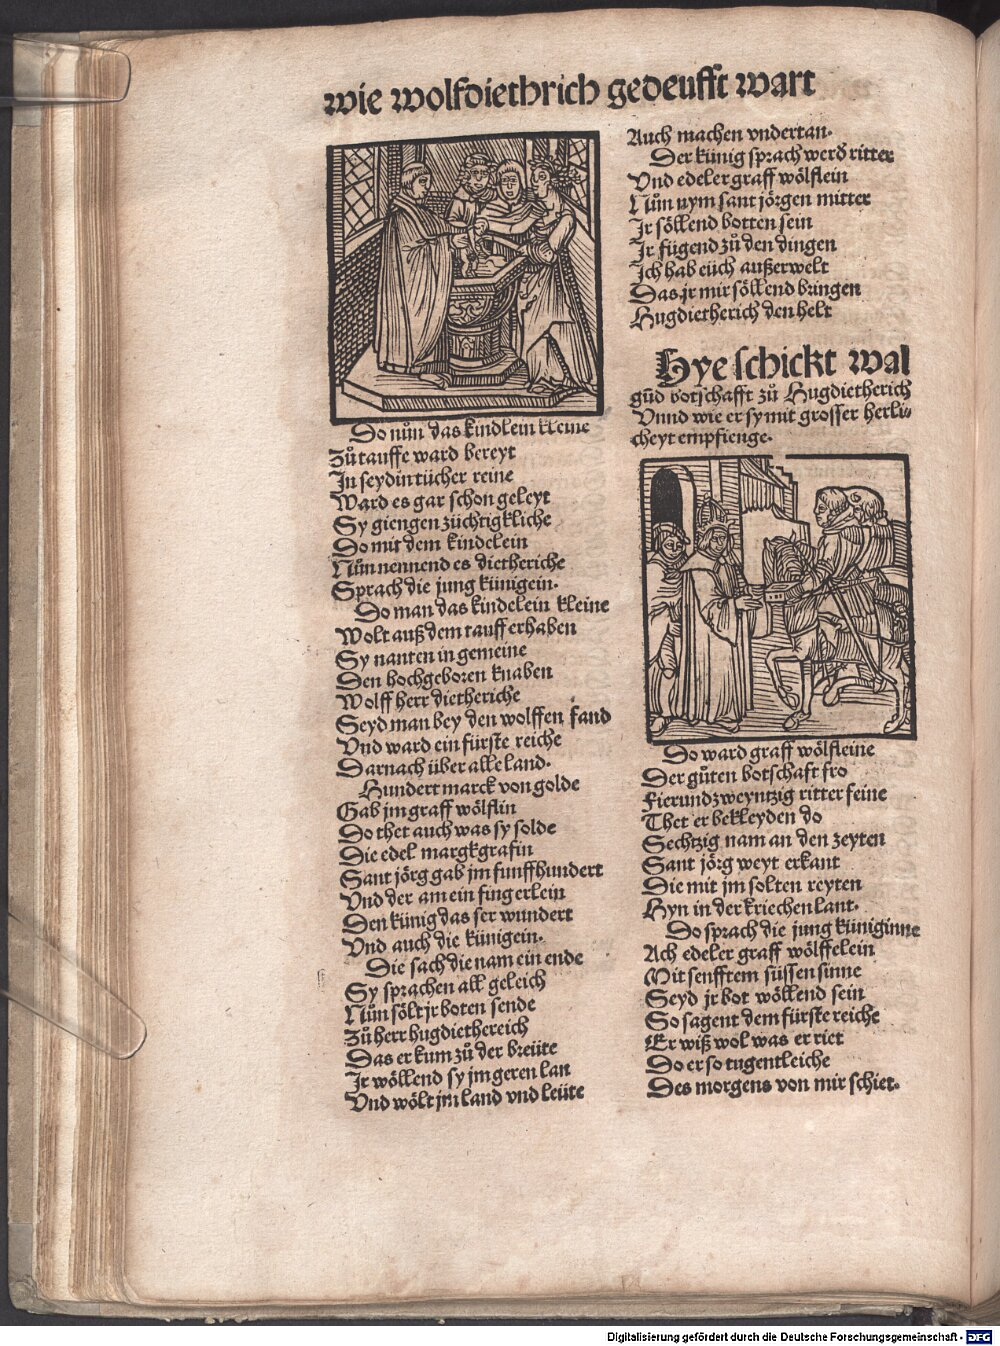 wie wolfdiethrich gedeufft wart
Do nůn das kindlein kleine
Zů tauffe ward bereyt
In seydin tücher reine
Ward es gar schon geleyt
Sy giengen züchtigkliche
Do mit dem kindelein
Nůn nennend es dietheriche
Sprach die jung künigein.
Do man das kindelein kleine
Wolt auß dem tauff erhaben
Sy nanten in gemeine
Den hochgeboren knaben
Wolff herr dietheriche
Seyd man bey den wolffen fand
Vnd ward ein fürste reiche
Darnach über alle land.
Hundert marck von golde
Gab jm graff wölflin
Do thet auch was sy solde
Die edel margkgrafin
Sant jörg gab jm funffhundert
Vnd der am ein fingerlein
Den künig das ser wundert
Vnd auch die künigein.
Die sach die nam ein ende
Sy sprachen all geleich
Nůn sölt jr boten sende
Zů herr hugdiethereich
Das er kum zů der breüte
Ir wöllend sy jm geren lan
Vnd wölt jm land vnd leüte
Auch machen vndertan.
Der künig sprach werd ritter
Vnd edeler graff wölflein
Nům nym sant jörgen mitter
Ir söllend botten sein
Ir fügend zů den dingen
Ich hab eüch außerwelt
Das jr mir söllend bringen
Hugdietherich den helt
Hye schickt wal
gůd botschafft zů Hugdietherich
Vnnd wie er sy mit grosser herli⸗
cheyt empfienge.
Do ward graff wölfleine
Der gůten botschaft fro
Fierundzweyntzig ritter feine
Thet er bekleyden do
Sechtzig nam an den zeyten
Sant jörg weyt erkant
Die mit jm solten reyten
Hyn in der kriechen lant.
Do sprach die jung küniginne
Ach edeler graff wölffelein
Mit senfftem süssen sinne
Seyd jr bot wöllend sein
So sagent dem fürste reiche
Er wiß wol was er riet
Do er so tugentleiche
Des morgens von mir schiet.
Digitalisierung gefördert durch die Deutsche Forschungsgemeinschaft - DFG